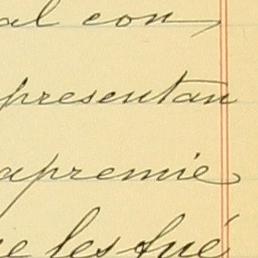 al con
presentan
apremie
e les fué